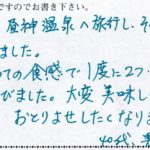 ですのでお書き下さい。
昼神温泉へ旅行し、そ
ました。
ての食感で1度に2つ
びました。大変美味し
おとりよせしたくなりま
40代、男